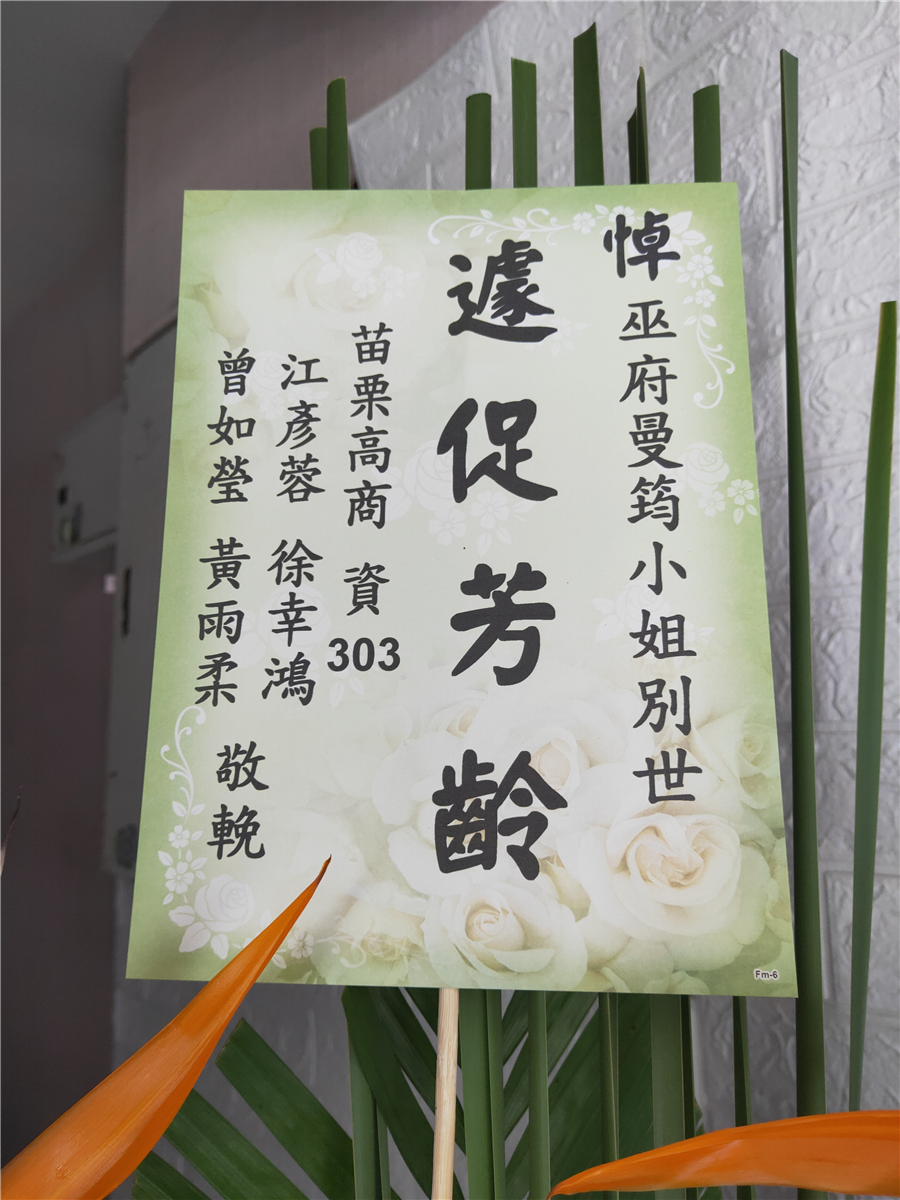 悼巫府曼筠小姐別世
遽促芳齡
苗栗高商 資303
江彥蓉 徐幸鴻
曾如瑩 黃雨柔
敬輓
Fm-6